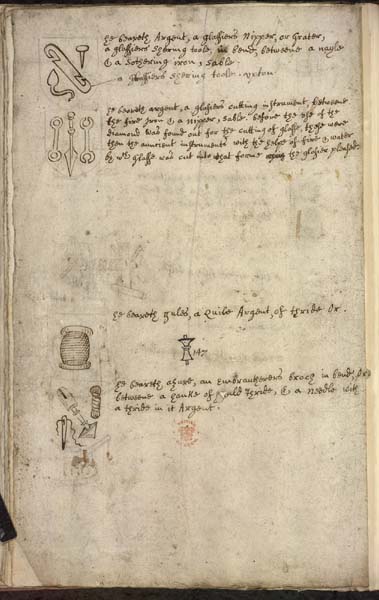 he beareth, Argent, a glasiers Nipper, or Grater,
a glasiers shering toole, in bend, betweene a nayle
& a Sothering iron, sable.
a Glasiers shering toole
he beareth argent, a glasiers cutting instrument, betweene
the fire iron & a nipper, sable. before the use of the
diamond was found out for the cutting of glasse, these were
then the auncient instruments with the helpe of fire & water
by wch Glasse was cut into what forme the glasier pleased.
he beareth gules, a Quile Argent, of thride Or.
147
he beareth, azure, an Embrautherers broch in bend, Or,
betweene a hanke of Gould thride, & a Needle with
a thride in it Argent.